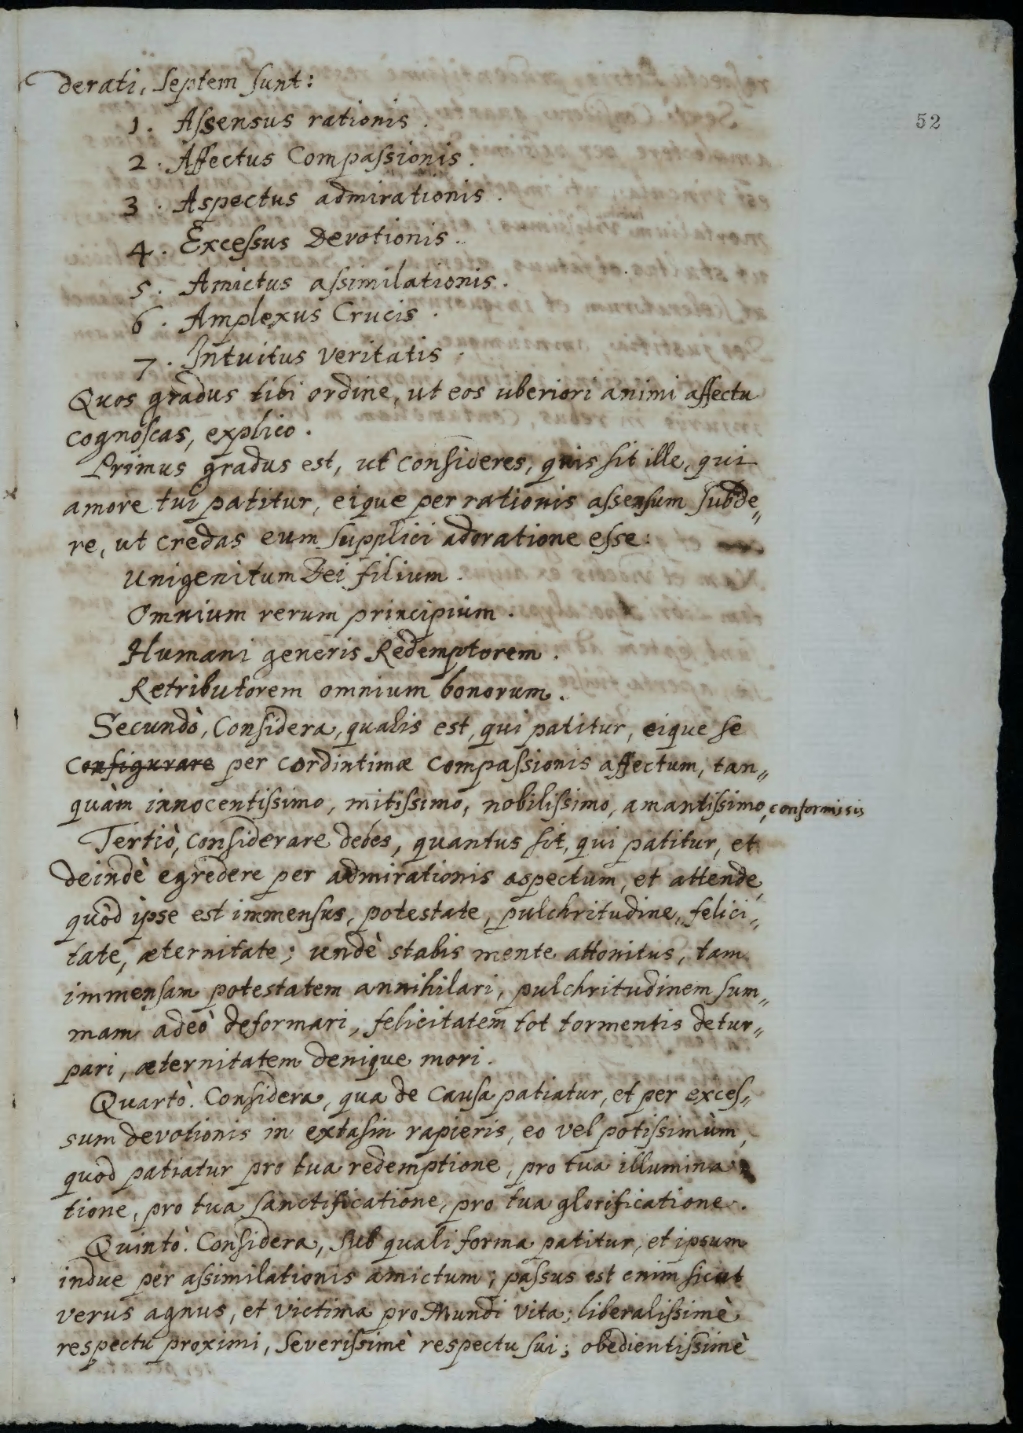 derati, septem sunt:
52
1. Assensus rationis.
2. Affectus Compassionis.
3. Aspectus admirationis.
4. Excessus Devotionis.
5. Amictus assimilationis.
6. Amplexus Crucis.
7. Intuitus veritatis.
Quos gradus tibi ordine, ut eos uberiori animi affectu
cognoscas, explico.
Primus gradus est, ut consideres, quis sit ille, qui
amore tui patitur, eique per rationis assensum subde„
re, ut credas eum supplici adoratione esse:
Unigenitum Dei filium.
Omnium rerum principium.
Humani generis Redemptorem.
Retributorem omnium bonorum.
Secundò, Considera, qualis est, qui patitur, eique se
configurare per cordintimæ compassionis affectum, tan„
quàm innocentissimo, mitissimo, nobilissimo, amantissimo, conformis sis
Tertiò, considerare debes, quantus sit, qui patitur, et
deindè egredere per admirationis aspectum, et attende,
quòd ipse est immensus, potestate, pulchritudine, felici„
tate, æternitate; undè stabis mente attonitus, tam
immensam potestatem annihilari, pulchritudinem sum„
mam adeò deformari, felicitatem tot tormentis detur„
pari, æternitatem denique mori.
Quartò. Considera, qua de causa patiatur, et per exces„
sum devotionis in extasim rapieris, eo vel potissimùm,
quod patiatur pro tua redemptione, pro tua illumina
tione, pro tua sanctificatione, pro tua glorificatione.
Quintò. Considera, sub quali forma patitur, et ipsum
indue per assimilationis amictum; passus est enim sicut
verus agnus, et victima pro Mundi vita; liberalissimè
respectu proximi, severissimè respectu sui; obedientissimè